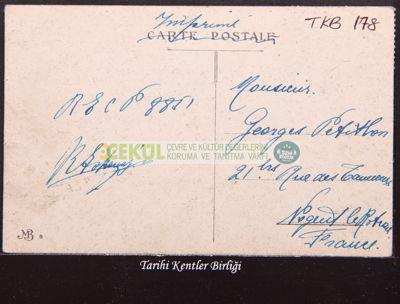 Imprimé
TKB 178
CARTE POSTALE
Monsieur.
R E C P 8851
Georges Petithon
ÇEKÜL
ÇEVRE VE KÜLTÜR DEĞERLERİNİ
KORUMA VE TANITMA VAKFI
21 bis Rue des Tanneurs
Nogent le Rotrou
France.
MB
Tarihi Kentler Birliği